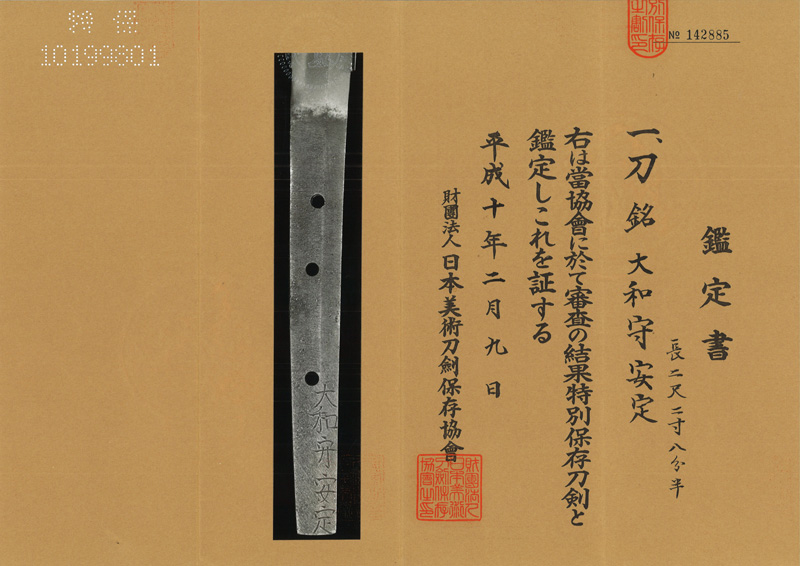 鑑定書
一、刀 銘 大和守安定
長二尺二寸八分半
右は當協會に於て審査の結果特別保存刀剣と
鑑定しこれを証する
平成十年二月九日
財團法人 日本美術刀劍保存協會
№ 142885
特保
10199801
大和守安定